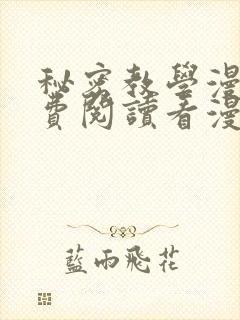 秘密教學漫
費閱讀看漫
藍雨飛花